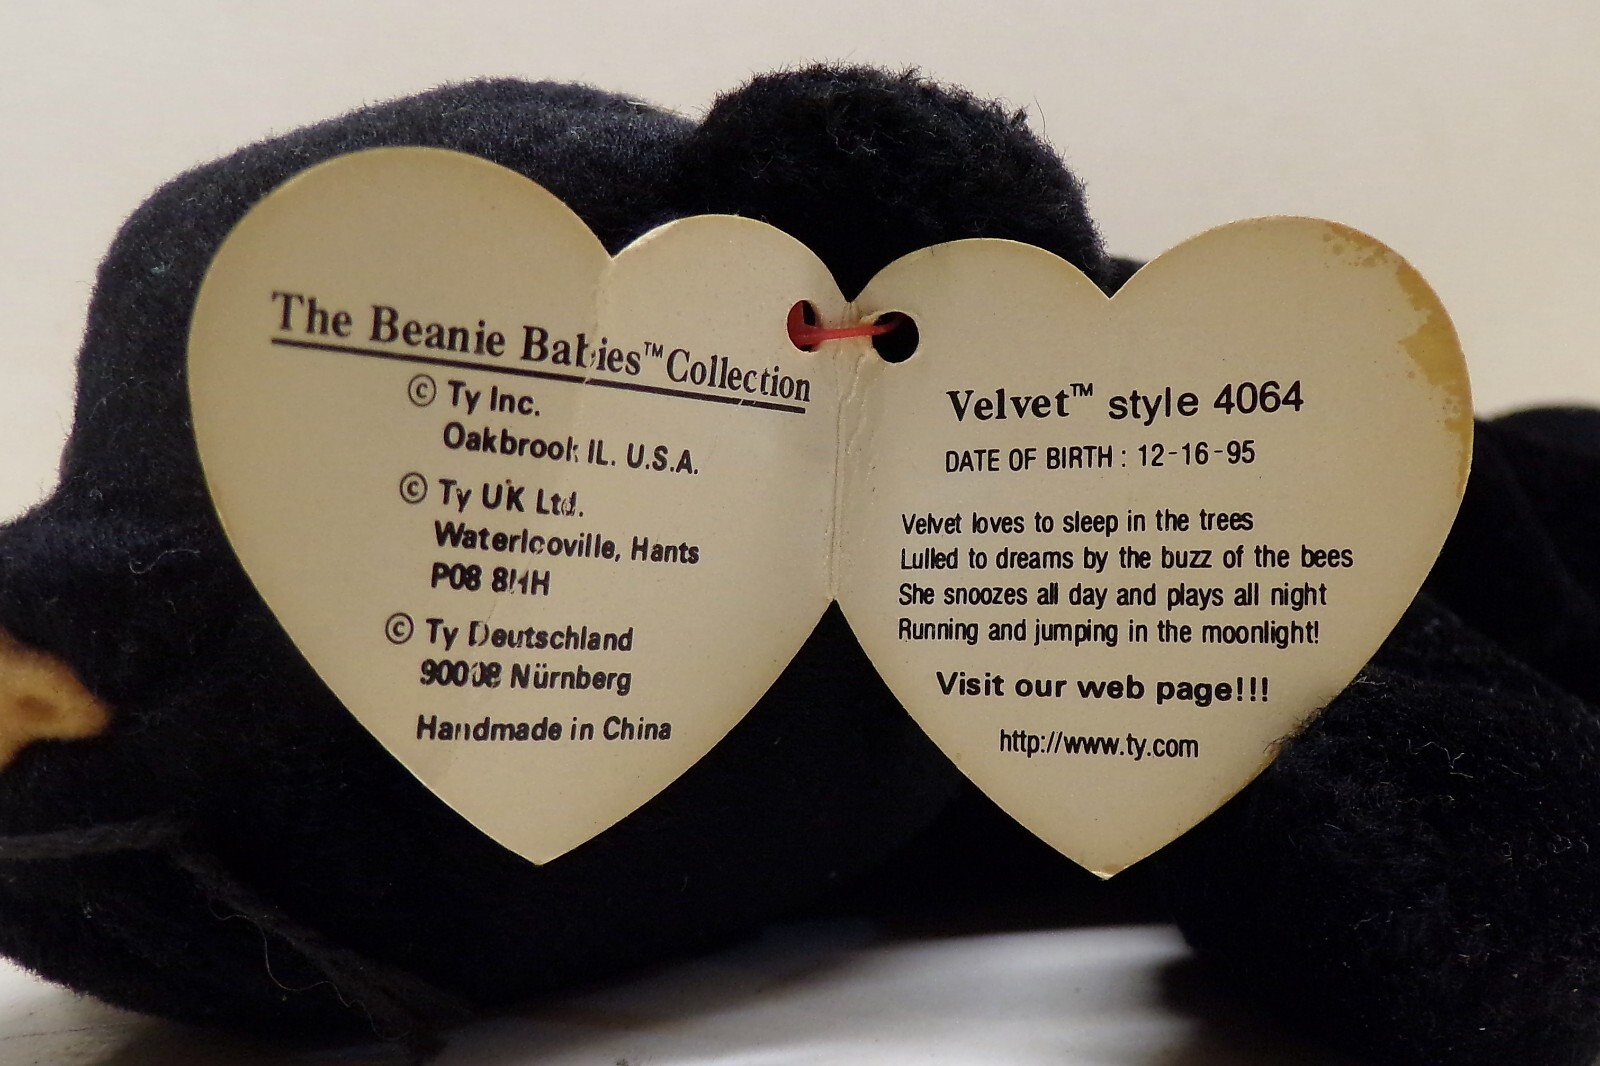 The Beanie Babies™ Collection
© Ty Inc.
Oakbrook IL. U.S.A.
© Ty UK Ltd.
Waterlooville, Hants
P08 8HH
© Ty Deutschland
90008 Nürnberg
Handmade in China
Velvet™ style 4064
DATE OF BIRTH : 12-16-95
Velvet loves to sleep in the trees
Lulled to dreams by the buzz of the bees
She snoozes all day and plays all night
Running and jumping in the moonlight!
Visit our web page!!!
http://www.ty.com